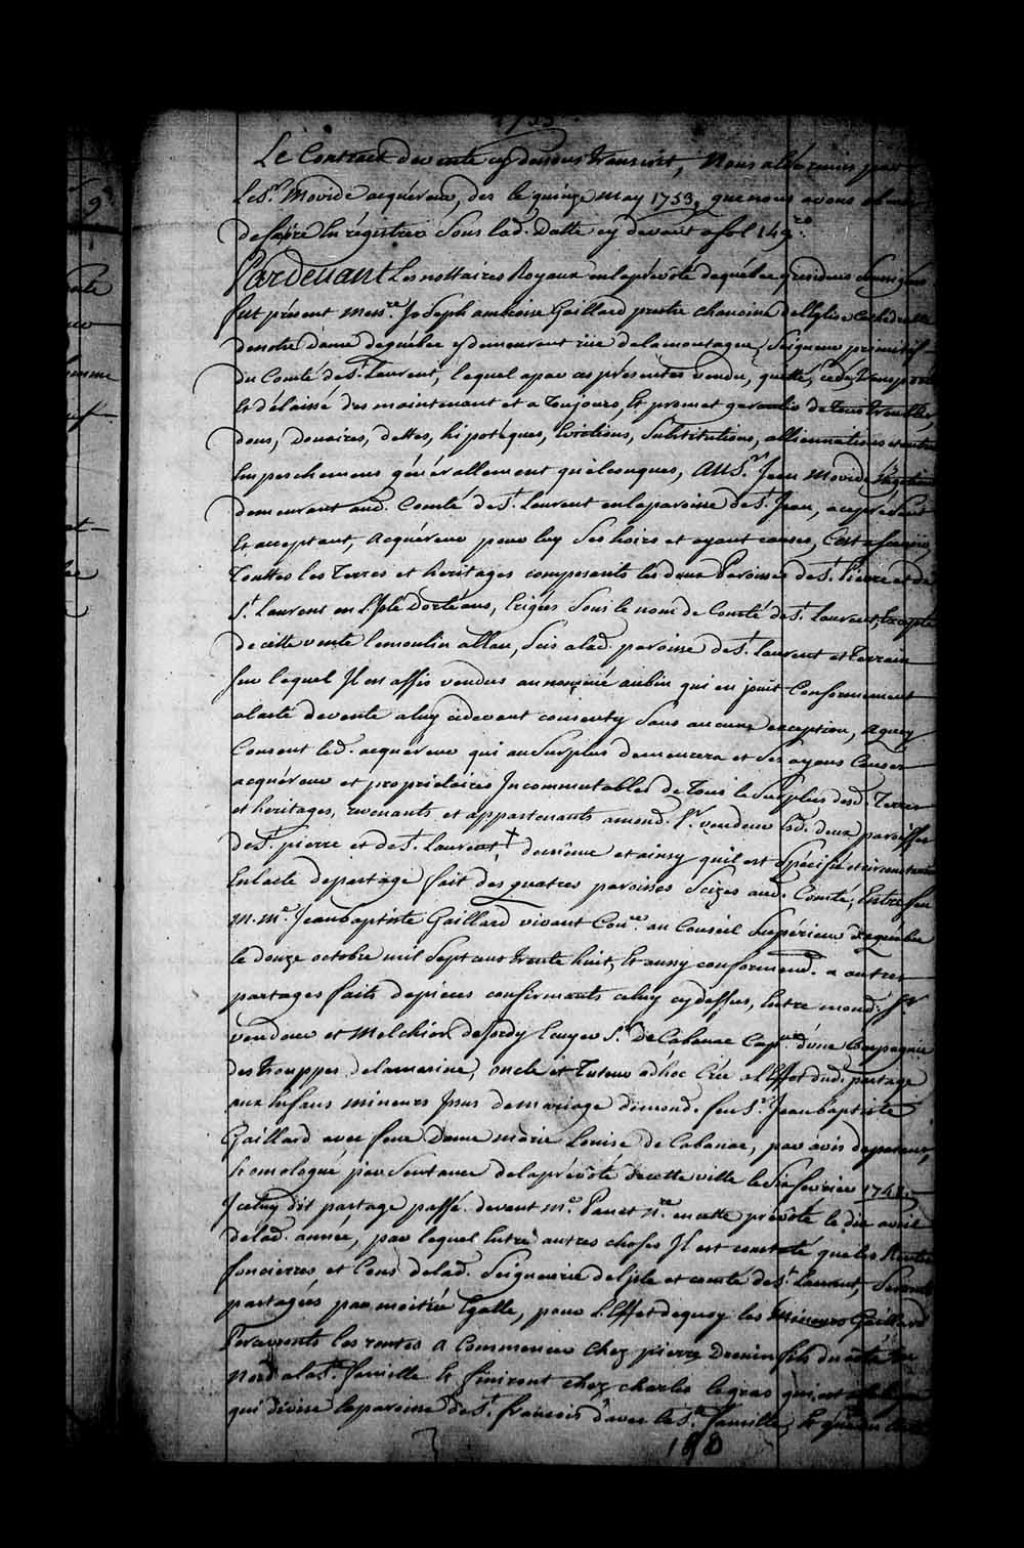 1753
Le Contract de vente cy dessus transcrit, Nous a été remis par
le S.r Movide acquéreur, dès le quinze may 1753, que nous avons obmis
de faire Enrégistrer Sous lad. Datte cy devant a fol 149 ro.
Pardevant Les nottaires Royaux en la prévosté de québec y residens Soussignés
fut présent Mess.re Joseph ambroise Gaillard prestre chanoine de l'Eglise Cathedralle
de notre dame de québec y demeurant rue de la montagne, Seigneur primitif
du Comté de S.t Laurent, lequel a par ces présentes vendu, quitté, cedé, transporté
Et délaissé des maintenant et a Toujours, Et promet garantir de Tous troubles,
dons, Douaires, dettes, hipotéques, Evictions, Substitutions, alliennations et autres
Empeschemens générallement quelconques, Au S.r Jean Movide
demeurant aud. Comté de S.t Laurent en la paroisse de S.t Jean, a ce présent
Et acceptant, Acquéreur pour luy Ses hoirs et ayant causes, C'est a savoir
Touttes les Terres et heritages composants les deux Paroisses de S.t Pierre et de
S.t Laurent en L'Isle Dorléans, Erigés Sous le nom de Comté de S.t Laurent, Excepté
de cette vente le moulin a Eau, Scis a lad. paroisse de S.t Laurent et Terrein
Sur lequel Il est assis vendus au nommé aubin qui en jouit Conformement
a l'acte de vente a luy cidevant consenty Sans aucune exception, a quoy
Consent led. acquereur qui au Surplus demeurera et Ses ayans Causes
acquéreur et proprietaires Incommutables de Tous le Surplus desd. Terres
et heritages, revenants et appartenants a mond. S.r vendeur esd. deux paroisses
de S.t pierre et de S.t Laurent, + de même et ainsy quil est Spécifié et circonstancié
En l'acte de partage fait des quatres paroisses Scizes aud. Comté, Entre feu
M. M.e Jean baptiste Gaillard vivant Con.er au Conseil Supérieur de québec
le douze octobre mil Sept cent trente huit, Et aussy conformend. a autres
partages faits depieces confirmants celuy cy dessus, Entre mond. S.r
vendeur et Melchior deJordy Ecuyer S.r De Cabanac Cap.ne d'une Compagnie
des trouppes de la marine, oncle et Tuteur adhoc Crée a l'Effet dud. partage
aux Enfans mineurs Issus de mariage dimond. feu S.r Jean baptiste
Gaillard avec feue Dame marie Louise de Cabanac, par avis de parens,
homologué par Sentence de la prévôté de cette ville le Six fevrier
Iceluy dit partage passé devant M.e Panet N.re en cette prévôté le dix avril
de lad. année, par lequel Entre autres choses Il est constaté que les Rentes
foncieres et Cens de lad. Seigneurie de l'Isle et comté de S.t Laurent, Seront
partagées par moitiée Egalle, pour l'Effet de quoy les Mineurs Gaillard
Percevront les rentes a Commencer Chez pierre Drouin fils du côté du
Nord a la S.te famille Et finiront chez charles legras qui est
qui divise la paroisse de S.t francois d'avec la S.te famille, Et
180